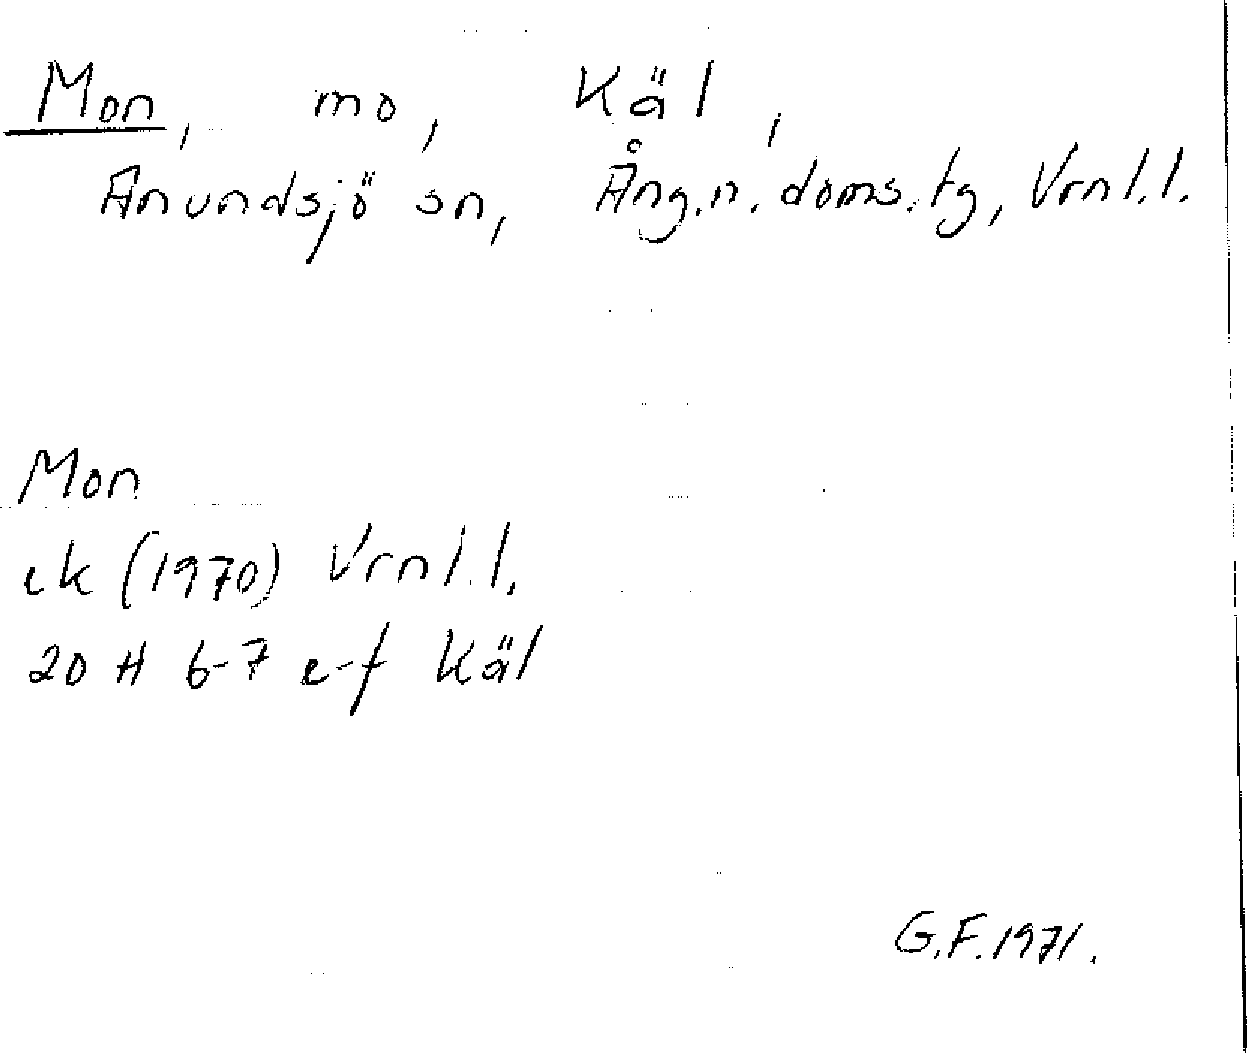 Mon, mo, Käl,
Anundsjö sn, Ång.n.doms.tg, Vrnl.l.
Mon
ek (1970) Vrnl.l.
20 H 6-7 e-f Käl
G.F. 1971.